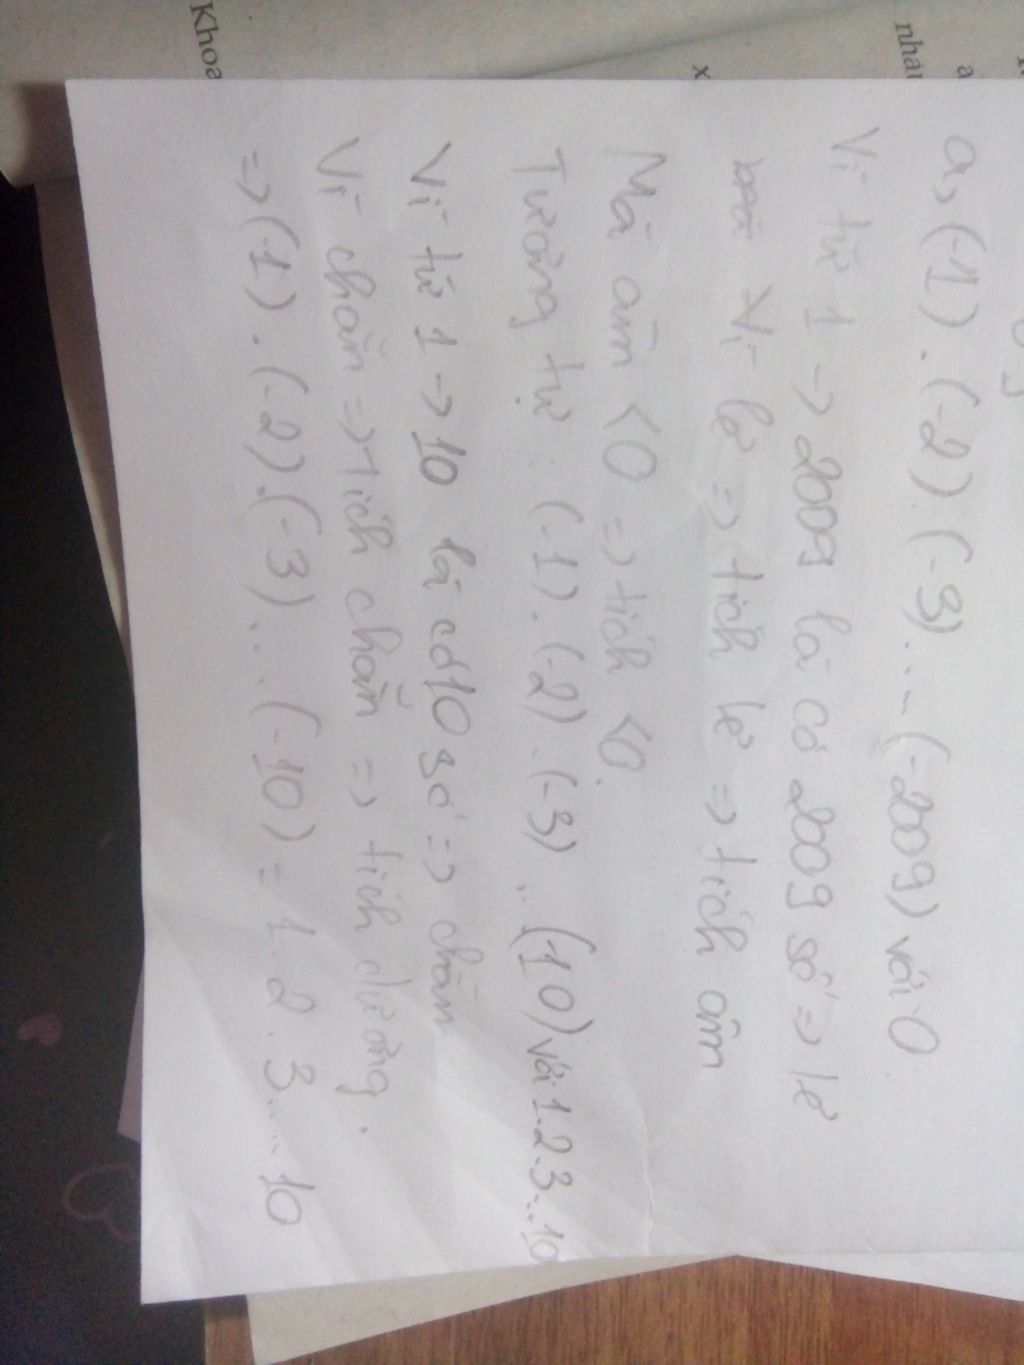 Khoa
nhât
a
x
a, (-1) . (-2) . (-3) .... (-2009) với 0
Vì từ 1 -> 2009 là có 2009 số => lẻ
Vì lẻ => tích lẻ => tích âm
Mà âm < 0 => tích < 0.
Tương tự : (-1) . (-2) . (-3) .. (10) với 1.2.3...10
Vì từ 1 -> 10 là có 10 số => chẵn
Vì chẵn => tích chẵn => tích dương.
=> (-1) . (-2) . (-3) . . . (-10) = 1 . 2 . 3 .... 10